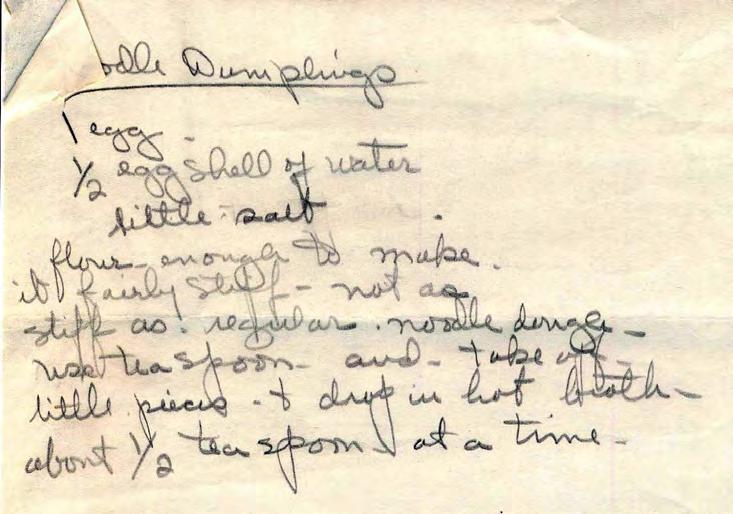 odle Dumplings
1 egg -
1/2 egg shell of water
little salt
flour - enough to make
it fairly stiff - not as
stiff as regular noodle dough -
use teaspoon - and - take off -
little pieces - & drop in hot broth -
about 1/2 teaspoon at a time -